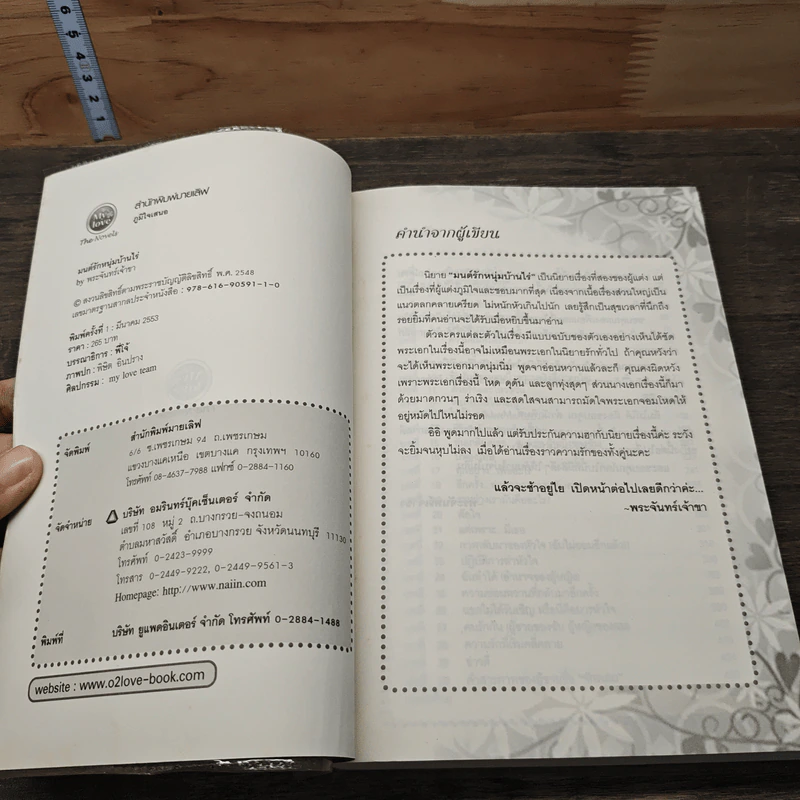 6 5 4 3 2 1
My
love
The Novels
สำนักพิมพ์มายเลิฟ
ภูมิใจเสนอ
มนต์รักหนุ่มบ้านไร่
by พระจันทร์เจ้าขา
© สงวนลิขสิทธิ์ตามพระราชบัญญัติลิขสิทธิ์ พ.ศ. 2548
เลขมาตรฐานสากลประจำหนังสือ : 978-616-90591-1-0
พิมพ์ครั้งที่ 1 : มีนาคม 2553
ราคา : 265 บาท
บรรณาธิการ : พี่โจ้
ภาพปก : พิษิต อินปราง
ศิลปกรรม : my love team
จัดพิมพ์ สำนักพิมพ์มายเลิฟ
6/6 ซ.เพชรเกษม 94 ถ.เพชรเกษม
แขวงบางแคเหนือ เขตบางแค กรุงเทพฯ 10160
โทรศัพท์ 08-4637-7988 แฟกซ์ 0-2884-1160
จัดจำหน่าย บริษัท อมรินทร์บุ๊คเซ็นเตอร์ จำกัด
เลขที่ 108 หมู่ 2 ถ.บางกรวย-จงถนอม
ตำบลมหาสวัสดิ์ อำเภอบางกรวย จังหวัดนนทบุรี 11130
โทรศัพท์ 0-2423-9999
โทรสาร 0-2449-9222, 0-2449-9561-3
Homepage: http://www.naiin.com
พิมพ์ที่ บริษัท ยูแพดอินเตอร์ จำกัด โทรศัพท์ 0-2884-1488
website : www.o2love-book.com
คำนำจากผู้เขียน
นิยาย "มนต์รักหนุ่มบ้านไร่" เป็นนิยายเรื่องที่สองของผู้แต่ง แต่
เป็นเรื่องที่ผู้แต่งภูมิใจและชอบมากที่สุด เนื่องจากเนื้อเรื่องส่วนใหญ่เป็น
แนวตลกคลายเครียด ไม่หนักหัวเกินไปนัก เลยรู้สึกเป็นสุขเวลาที่นึกถึง
รอยยิ้มที่คนอ่านจะได้รับเมื่อหยิบขึ้นมาอ่าน
ตัวละครแต่ละตัวในเรื่องมีแบบฉบับของตัวเองอย่างเห็นได้ชัด
พระเอกในเรื่องนี้อาจไม่เหมือนพระเอกในนิยายรักทั่วไป ถ้าคุณหวังว่า
จะได้เห็นพระเอกมาดนุ่มนิ่ม พูดจาอ่อนหวานแล้วละก็ คุณคงผิดหวัง
เพราะพระเอกเรื่องนี้ โหด ดุดัน และลูกทุ่งสุดๆ ส่วนนางเอกเรื่องนี้ก็มา
ด้วยมาดกวนๆ ร่าเริง และสดใสจนสามารถมัดใจพระเอกจอมโหดให้
อยู่หมัดไปไหนไม่รอด
อิอิ พูดมากไปแล้ว แต่รับประกันความฮากับนิยายเรื่องนี้ค่ะ ระวัง
จะยิ้มจนหุบไม่ลง เมื่อได้อ่านเรื่องราวความรักของทั้งคู่นะคะ
แล้วจะช้าอยู่ไย เปิดหน้าต่อไปเลยดีกว่าค่ะ...
~พระจันทร์เจ้าขา